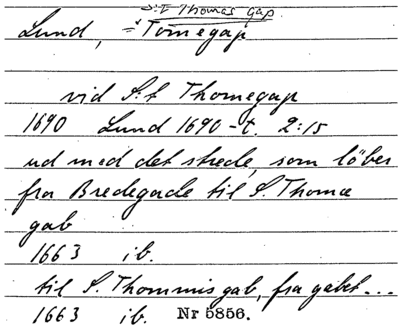 S:t Thomas gap
Lund, = Tomegap
vid S:t Thomegap
1690 Lund 1690-t. 2:15
ud med det strede, som löber
fra Bredegade til S. Thomæ
gab
1663 ib.
til S. Thommis gab, fra gabet...
1663 ib. Nr 5856.